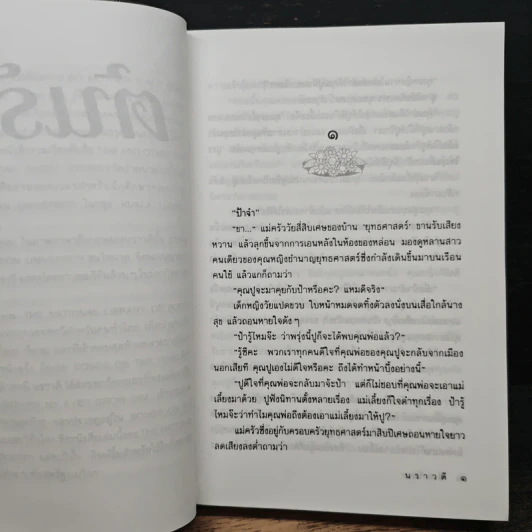 ๑
"ป้าจ๋า"
"ขา..." แม่ครัววัยสี่สิบเศษของบ้าน 'ยุทธศาสตร์' ขานรับเสียง
หวาน แล้วลุกขึ้นจากการเอนหลังในห้องของหล่อน มองดูหลานสาว
คนเดียวของคุณหญิงชำนาญยุทธศาสตร์ซึ่งกำลังเดินขึ้นมาบนเรือน
คนใช้ แล้วแกก็ถามว่า
"คุณปูจะมาคุยกับป้าหรือคะ? แหมดีจริง"
เด็กหญิงวัยแปดขวบ ใบหน้าหมดจดทิ้งตัวลงนั่งบนเสื่อใกล้นาง
สุข แล้วถอนหายใจดังๆ
"ป้ารู้ไหมจ๊ะ ว่าพรุ่งนี้ปูก็จะได้พบคุณพ่อแล้ว?"
"รู้ซีคะ พวกเราทุกคนดีใจที่คุณพ่อของคุณปูจะกลับจากเมือง
นอกเสียที คุณปูเองไม่ดีใจหรือคะ ถึงได้ทำหน้าบึ้งอย่างนี้"
"ปูดีใจที่คุณพ่อจะกลับมาจ้ะป้า แต่ก็ไม่ชอบที่คุณพ่อจะเอาแม่
เลี้ยงมาด้วย ปูฟังนิทานตั้งหลายเรื่อง แม่เลี้ยงก็ใจดำทุกเรื่อง ป้ารู้
ไหมจ๊ะว่าทำไมคุณพ่อถึงต้องเอาแม่เลี้ยงมาให้ปู?"
แม่ครัวซึ่งอยู่กับครอบครัวยุทธศาสตร์มาสิบปีเศษถอนหายใจยาว
ลดเสียงลงต่ำถามว่า
นราวดี ๑